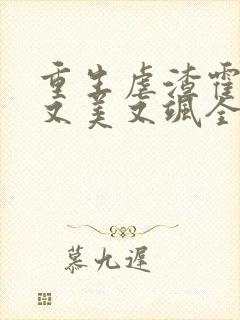 重生虐渣霍
又美又飒全
慕九遲